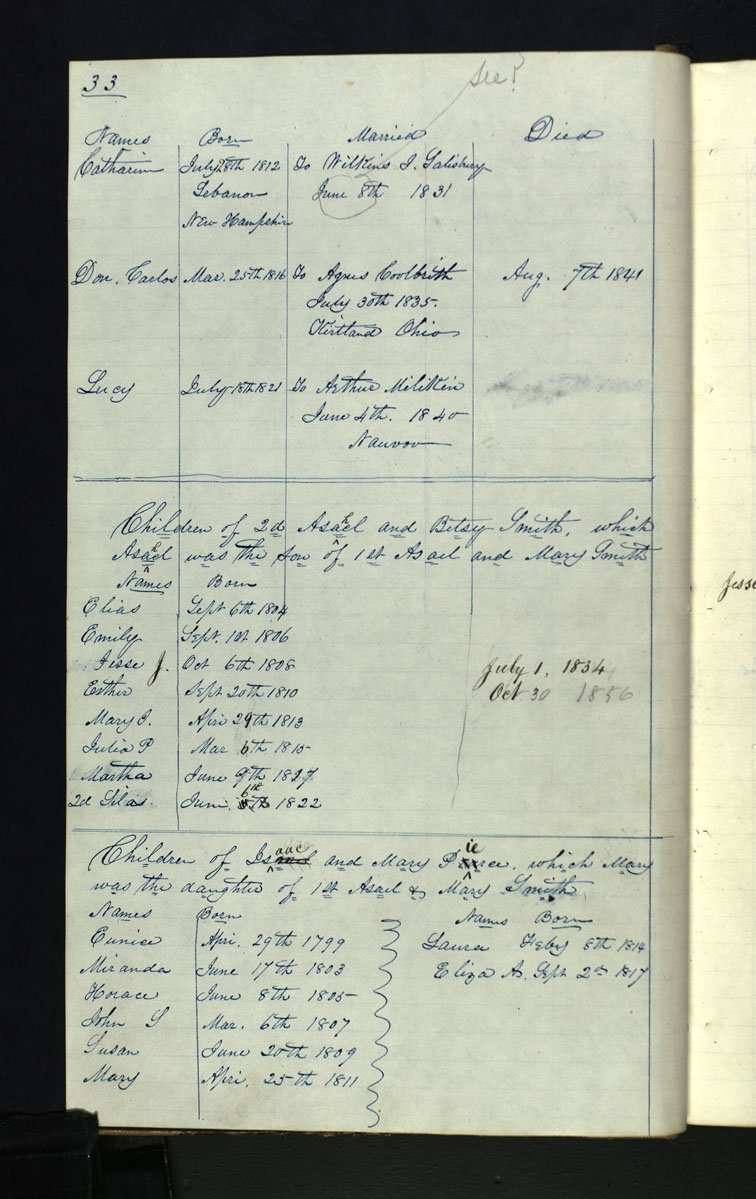 33
See?
Names Born Married Died
Catharine July 28th 1812 To Wilkins J. Salisbury
Lebanon June 8th 1831
New Hampshire
Don. Carlos Mar. 25th 1816 To Agnes Coolbrith Aug. 7th 1841
July 30th 1835.
Kirtland Ohio
Lucy July 18th 1821 To Arthur Milikin
June 4th. 1840
Nauvoo
Children of 2d Asahel and Betsy Smith, which
Asahel was the Son of 1st Asael and Mary Smith
Names Born
Elias Sept 6th 1804
Emily Sept. 1st 1806
Jesse J. Oct 6th 1808 July 1, 1834
Esther Sept 20th 1810 Oct 30 1856
Mary J. Apri 29th 1813
Julia P Mar 6th 1815
Martha June 9th 1817
2d Silas. June. 6th 1822
Children of Isaac and Mary Pierce, which Mary
was the daughter of 1st Asael & Mary Smith
Names Born Names Born
Eunice Apri. 29th 1799 Laura Feby 8th 1814
Miranda June 17th 1803 Eliza A. Sept 2nd 1817
Horace June 8th 1805
John S Mar. 6th 1807
Susan June 20th 1809
Mary Apri. 25th 1811
Jesse